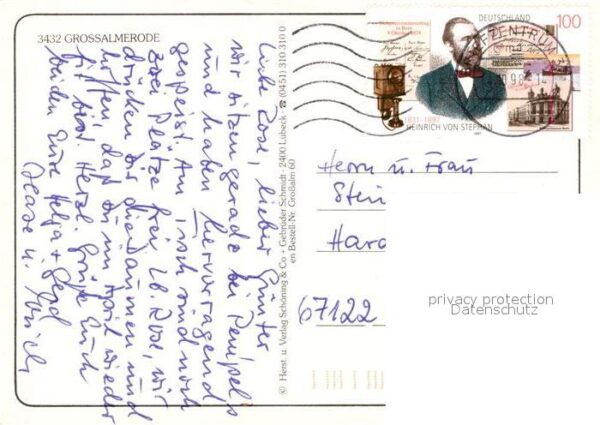 3432 GROSSALMERODE
Liebe Rose, lieber Günter
wir sitzen gerade bei Pempel's
und haben hervorragend
gespeist. Am Tisch sind noch
zwei Plätze frei. Lb. Rose, wir
drücken Dir die Daumen und
hoffen, daß Du im April wieder
fit bist. Herzl. Grüße Euch
beiden Eure Helga + Gerd
u. Ulrich
© Herst. u. Verlag Schöning & Co + Gebrüder Schmidt · 2400 Lübeck · ☎ (0451) 310 310 0
en Bestell-Nr. Großalm 60
DEUTSCHLAND
100
1831-1897
HEINRICH VON STEPHAN
1997
FZENTRUM
Herrn u. Frau
Stei
Hard
67122
privacy protection
Datenschutz